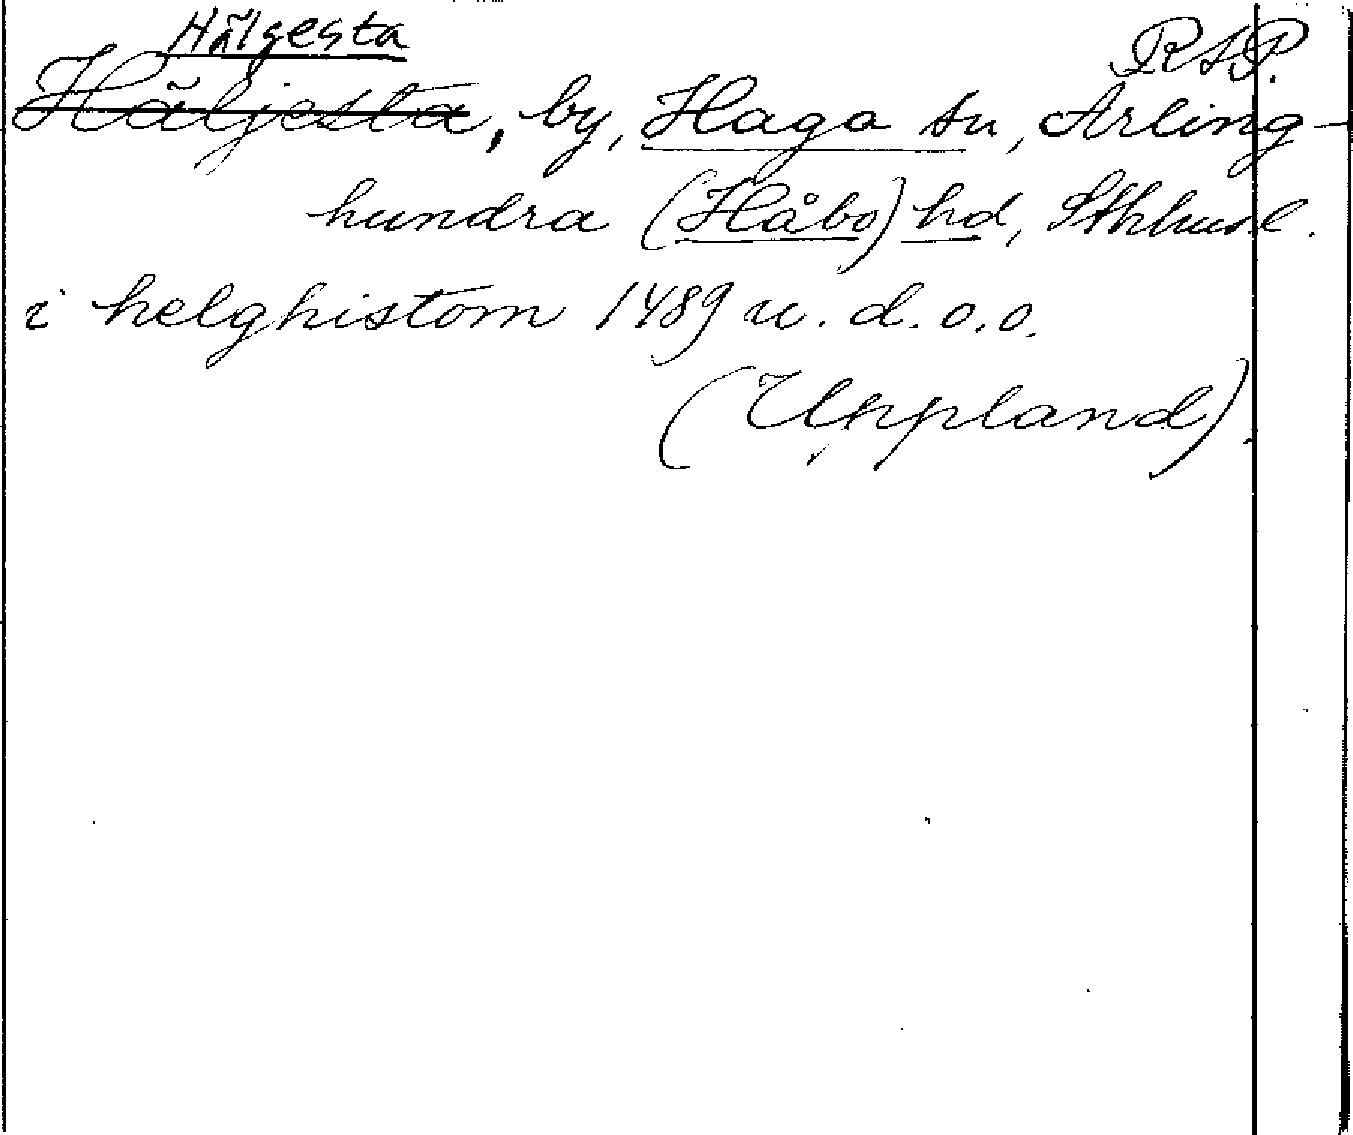 Hälgesta
RAP.
Häljesta, by, Haga sn, Arling-
hundra (Håbo) hd, Sthlms l.
i helghistom 1489 u. d. o. o.
(Uppland).